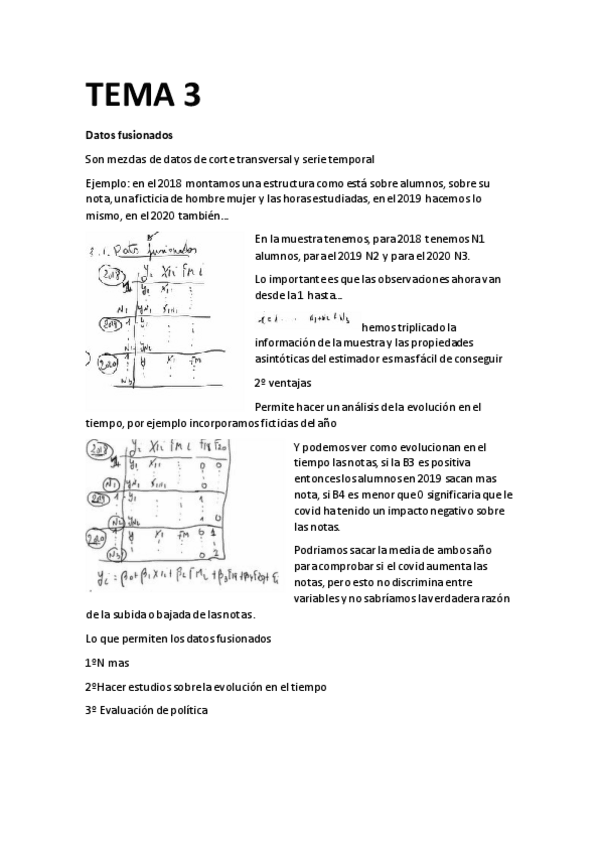 TEMA 3
Datos fusionados
Son mezclas de datos de corte transversal y serie temporal
Ejemplo: en el 2018 montamos una estructura como está sobre alumnos, sobre su
nota, una ficticia de hombre mujer y las horas estudiadas, en el 2019 hacemos lo
mismo, en el 2020 también...
3.1. Datos fusionados
2018
2019
2020
En la muestra tenemos, para 2018 tenemos N1
alumnos, para el 2019 N2 y para el 2020 N3.
Lo importante es que las observaciones ahora van
desde la 1 hasta...
hemos triplicado la
información de la muestra y las propiedades
asintóticas del estimador es mas fácil de conseguir
2º ventajas
Permite hacer un análisis de la evolución en el
tiempo, por ejemplo incorporamos ficticias del año
2018
2019
2020
Y podemos ver como evolucionan en el
tiempo las notas, si la B3 es positiva
entonces los alumnos en 2019 sacan mas
nota, si B4 es menor que 0 significaria que le
covid ha tenido un impacto negativo sobre
las notas.
Podriamos sacar la media de ambos año
para comprobar si el covid aumenta las
notas, pero esto no discrimina entre
variables y no sabríamos la verdadera razón
de la subida o bajada de las notas.
Lo que permiten los datos fusionados
1ºN mas
2ºHacer estudios sobre la evolución en el tiempo
3º Evaluación de política